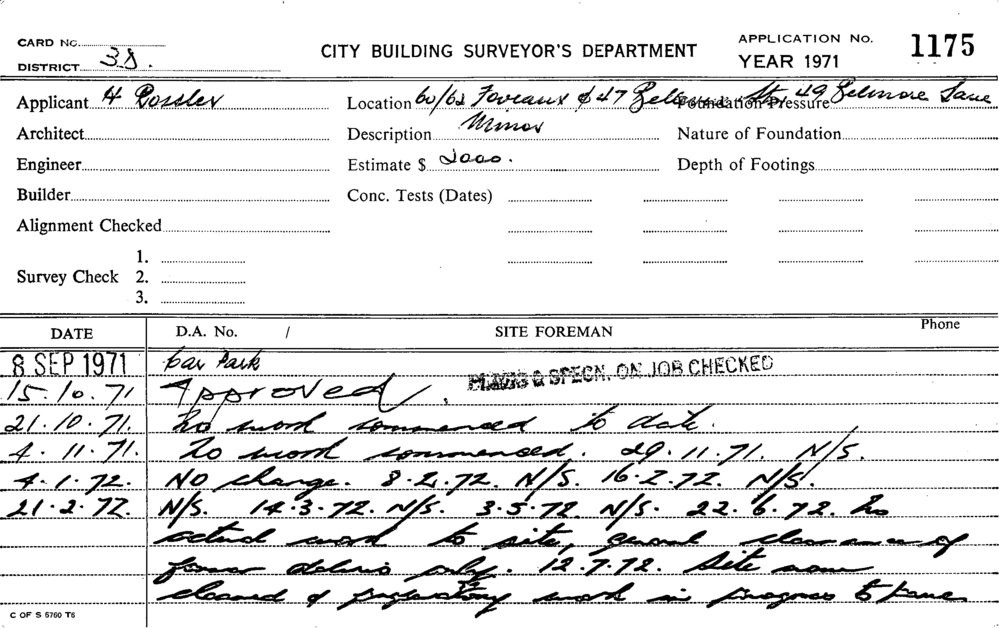 CARD No.
DISTRICT 38.
CITY BUILDING SURVEYOR'S DEPARTMENT
APPLICATION No. 1175
YEAR 1971
Applicant H Dossler
Location 60/62 Foveaux & 47 St, 49 Belmore Lane
Foundation Pressure
Architect
Description Minor
Nature of Foundation
Engineer
Estimate $ 2000.
Depth of Footings
Builder
Conc. Tests (Dates)
Alignment Checked
Survey Check 1.
2.
3.
DATE D.A. No. / SITE FOREMAN Phone
8 SEP 1971 Car Park PLANS & SPECN. ON JOB CHECKED
15.10.71 Approved.
21.10.71. No work commenced to date.
4.11.71. No work commenced. 29.11.71. N/S.
4.1.72. NO change. 8.2.72. N/S. 16.2.72. N/S.
21.2.72. N/S. 14.3.72. N/S. 3.5.72. N/S. 22.6.72. No
actual work to site, general clearance of
former debris only. 12.7.72. Site now
cleared & preparatory work in progress to
C OF S 5760 T6